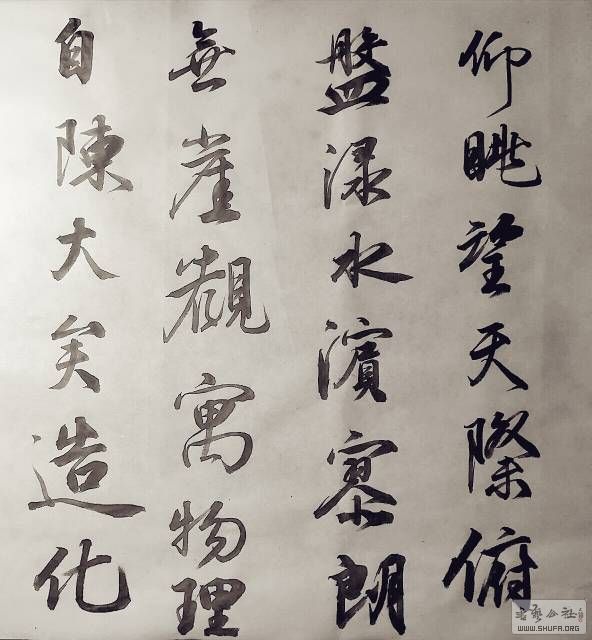 仰眺望天際俯
盤淥水濱寥朗
無崖觀寓物理
自陳大矣造化
WWW.SHUFA.ORG